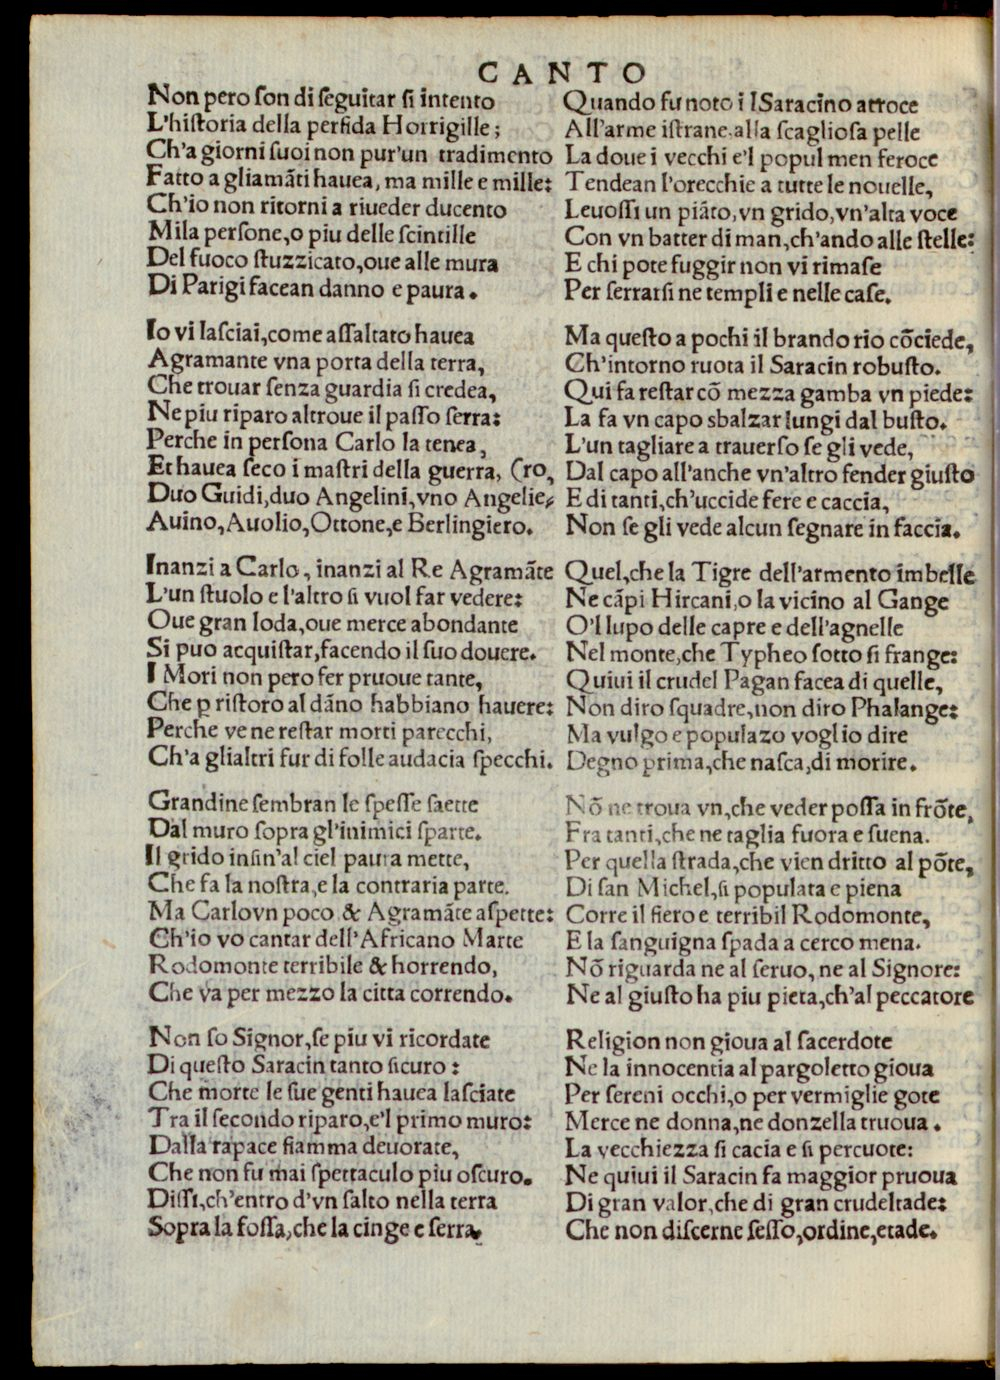 CANTO
Non pero ſon di ſeguitar ſi intento
L'hiſtoria della perfida Horrigille;
Ch'a giorni ſuoi non pur'un tradimento
Fatto a gliamāti hauea, ma mille e mille:
Ch'io non ritorni a riueder ducento
Mila perſone,o piu delle ſcintille
Del fuoco ſtuzzicato,oue alle mura
Di Parigi facean danno e paura.
Io vi laſciai,come aſſaltato hauea
Agramante vna porta della terra,
Che trouar ſenza guardia ſi credea,
Ne piu riparo altroue il paſſo ſerra:
Perche in perſona Carlo la tenea,
Et hauea ſeco i maſtri della guerra, (ro,
Duo Guidi,duo Angelini,vno Angelie-
Auino,Auolio,Ottone,e Berlingiero.
Inanzi a Carlo, inanzi al Re Agramāte
L'un ſtuolo e l'altro ſi vuol far vedere:
Oue gran loda,oue merce abondante
Si puo acquiſtar,facendo il ſuo douere.
I Mori non pero fer pruoue tante,
Che ꝑ riſtoro al dāno habbiano hauere:
Perche ve ne reſtar morti parecchi,
Ch'a glialtri fur di folle audacia ſpecchi.
Grandine ſembran le ſpeſſe ſaette
Dal muro ſopra gl'inimici ſparte.
Il grido inſin'al ciel paura mette,
Che fa la noſtra,e la contraria parte.
Ma Carlo vn poco & Agramāte aſpette:
Ch'io vo cantar dell'Africano Marte
Rodomonte terribile & horrendo,
Che va per mezzo la citta correndo.
Non ſo Signor,ſe piu vi ricordate
Di queſto Saracin tanto ſicuro:
Che morte le ſue genti hauea laſciate
Tra il ſecondo riparo,e'l primo muro:
Dalla rapace fiamma deuorate,
Che non fu mai ſpettaculo piu oſcuro.
Diſſi,ch'entro d'vn ſalto nella terra
Sopra la foſſa,che la cinge e ſerra.
Quando fu noto i l Saracino atroce
All'arme iſtrane,alla ſcaglioſa pelle
La doue i vecchi e'l popul men feroce
Tendean l'orecchie a tutte le nouelle,
Leuoſſi un piāto,vn grido,vn'alta voce
Con vn batter di man,ch'ando alle ſtelle:
E chi pote fuggir non vi rimaſe
Per ſerrarſi ne templi e nelle caſe.
Ma queſto a pochi il brando rio cōciede,
Ch'intorno ruota il Saracin robuſto.
Qui fa reſtar cō mezza gamba vn piede:
La fa vn capo sbalzar lungi dal buſto.
L'un tagliare a trauerſo ſe gli vede,
Dal capo all'anche vn'altro fender giuſto
E di tanti,ch'uccide fere e caccia,
Non ſe gli vede alcun ſegnare in faccia.
Quel,che la Tigre dell'armento imbelle
Ne cāpi Hircani,o la vicino al Gange
O'l lupo delle capre e dell'agnelle
Nel monte,che Typheo ſotto ſi frange:
Quiui il crudel Pagan facea di quelle,
Non diro ſquadre,non diro Phalange:
Ma vulgo e populazo voglio dire
Degno prima,che naſca,di morire.
Nō ne troua vn,che veder poſſa in frōte,
Fra tanti,che ne taglia fuora e ſuena.
Per quella ſtrada,che vien dritto al pōte,
Di ſan Michel,ſi populata e piena
Corre il fiero e terribil Rodomonte,
E la ſanguigna ſpada a cerco mena.
Nō riguarda ne al ſeruo, ne al Signore:
Ne al giuſto ha piu pieta,ch'al peccatore
Religion non gioua al ſacerdote
Ne la innocentia al pargoletto gioua
Per ſereni occhi,o per vermiglie gote
Merce ne donna,ne donzella truoua.
La vecchiezza ſi cacia e ſi percuote:
Ne quiui il Saracin fa maggior pruoua
Di gran valor,che di gran crudeltade:
Che non diſcerne ſeſſo,ordine,etade.